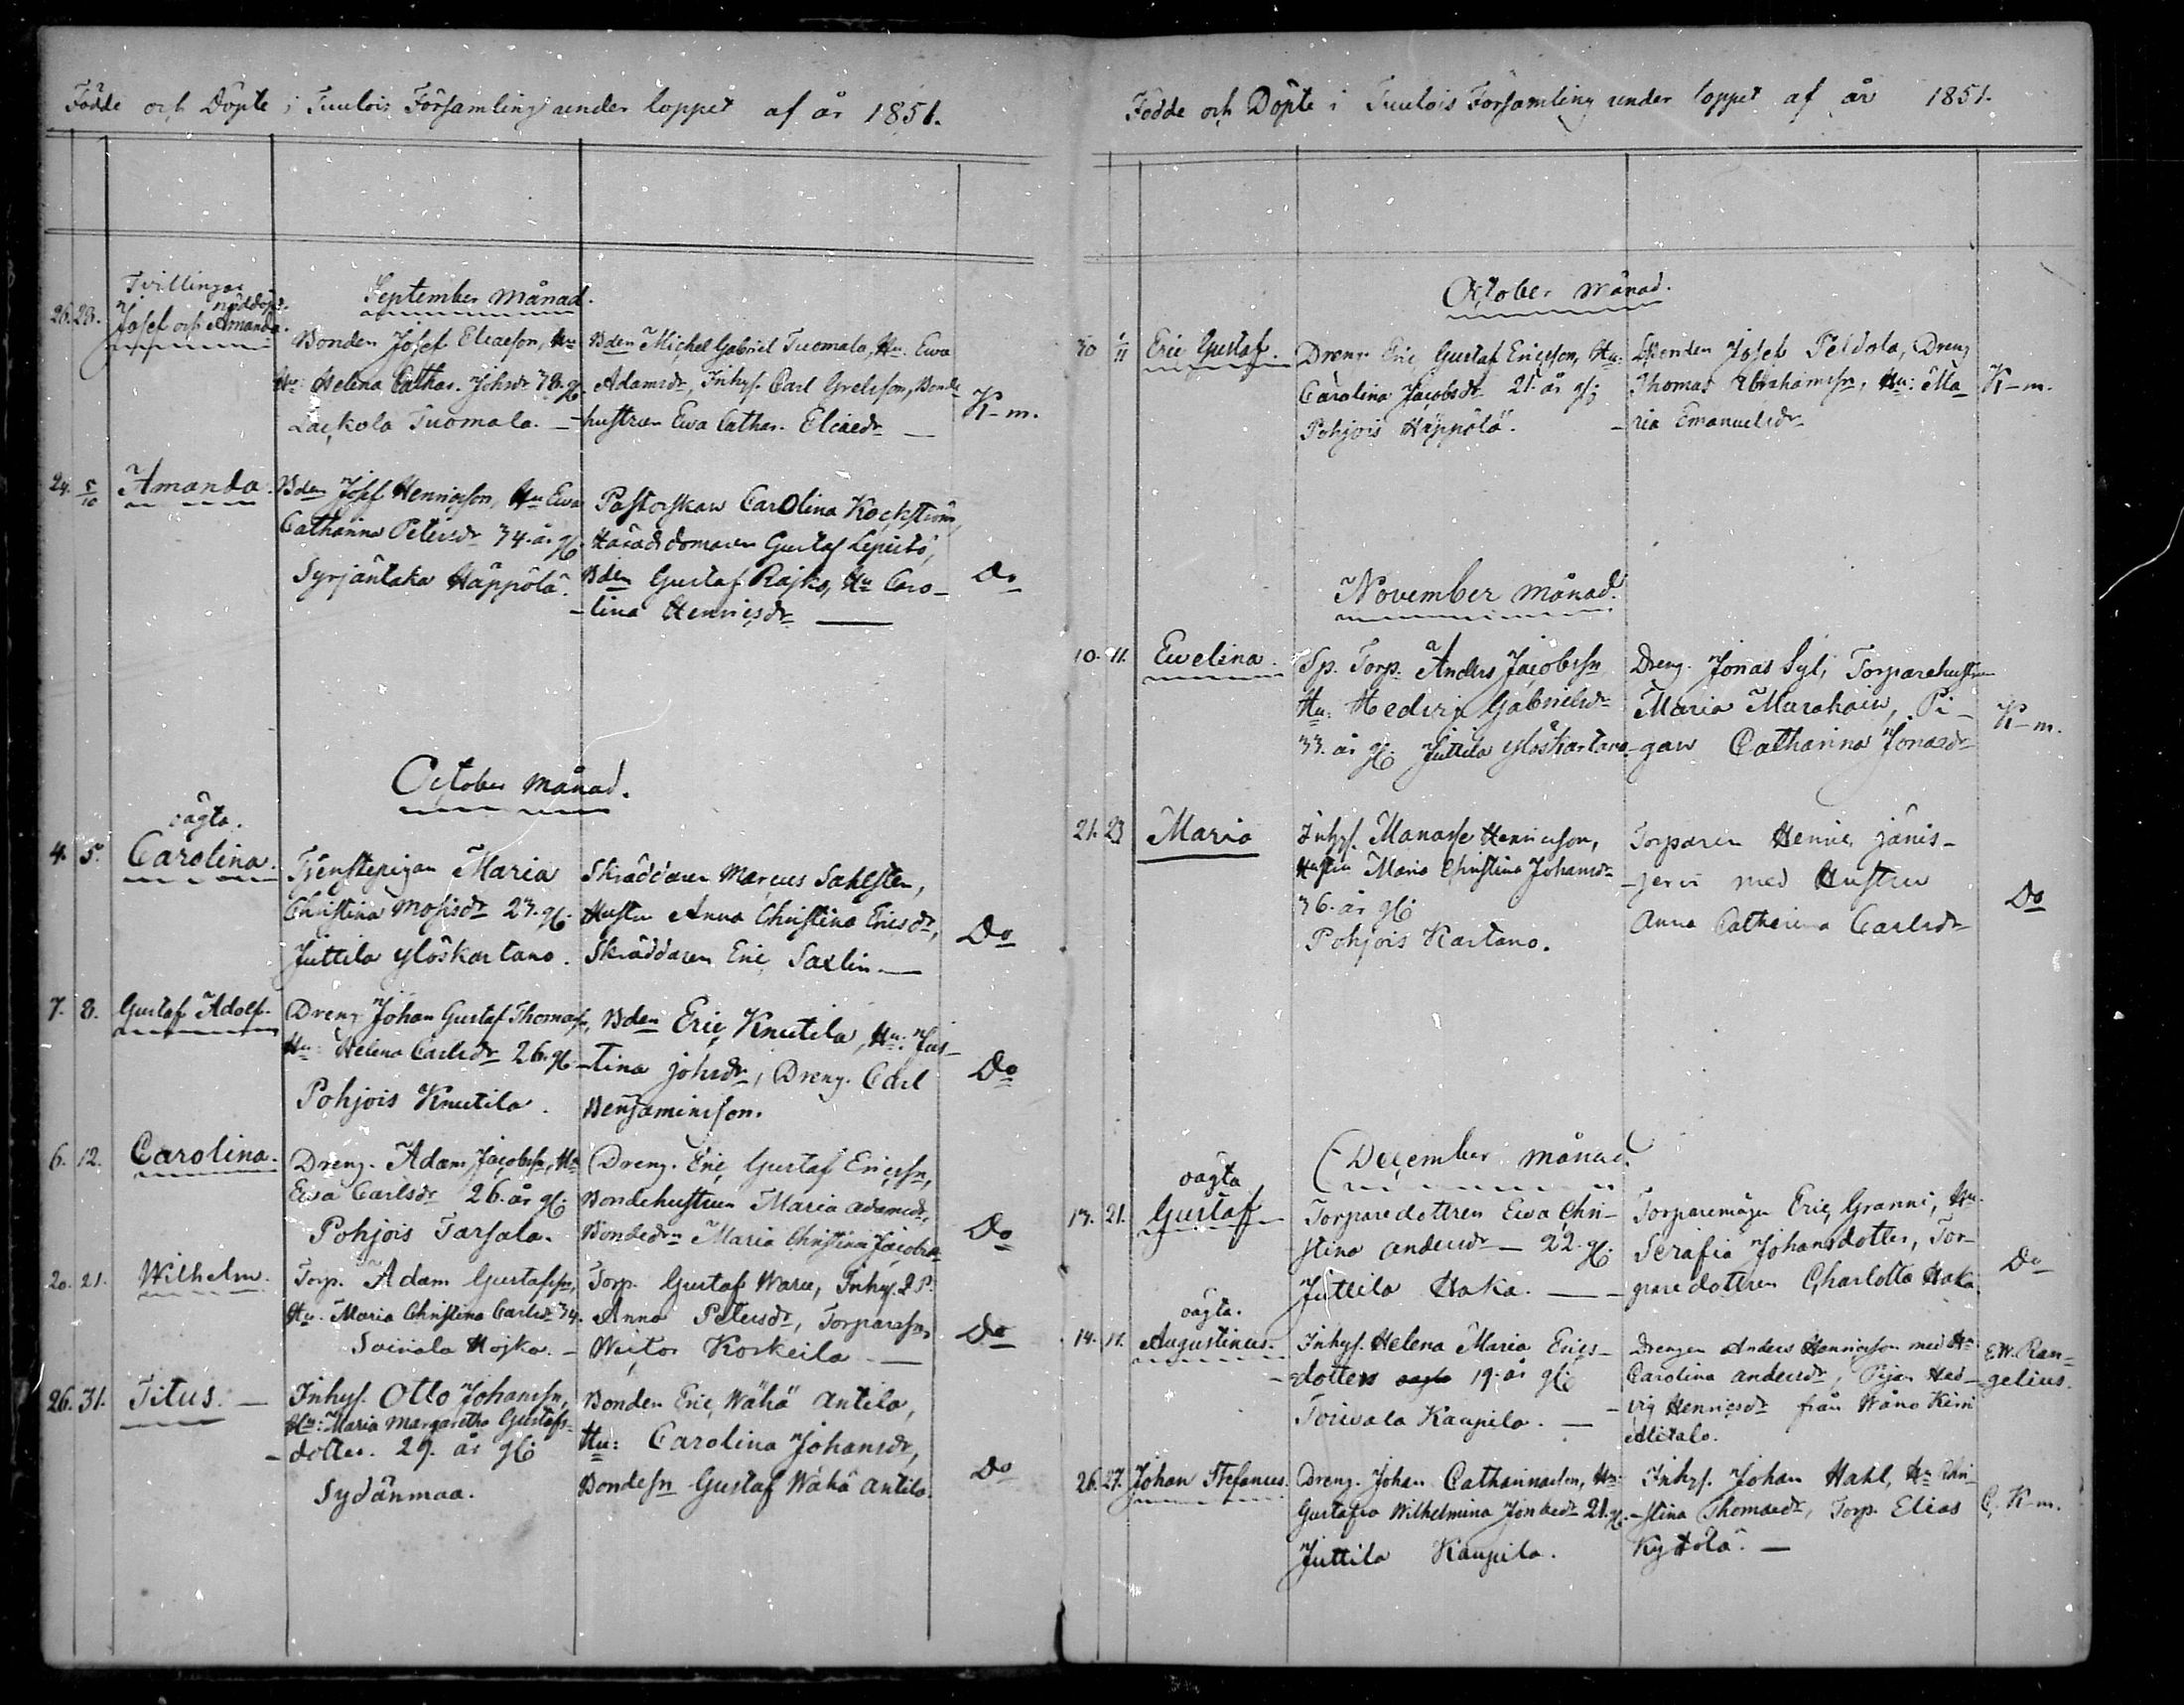 Födde och Döpte i Tuulois Församling under loppet af år 1851.
September månad.
Tvillingar
nöddöpt.
26. 28. Josef och Amanda.
Bonden Josef Eliaeson, Hu
Hu: Helena Cathar. Johsdr 38. gl.
Lackola Tuomala. —
Bden Michel Gabriel Tuomala, Hu. Ewa
Adamsdr, Inhys. Carl Grelsson, Bonde
hustrun Ewa Cathar. Eliaedr —
K-m.
24. 5/10 Amanda.
Bden Josef Henricsson, Hu Ewa
Catharina Petersdr 34. år gl.
Syrjäntaka Häppölä.
Pastorskan Carolina Kockström,
Häradsdomaren Gustaf Lepistö,
Bden Gustaf Rajko, Hu Caro-
-lina Henricsdr —
Do
October månad.
oägta.
4. 5. Carolina.
Tjenstepigan Maria
Christina Mosisdr 23. gl.
Juttila Yloskartano.
Skräddaren Marcus Sahlsten,
Hustru Anna Christina Ericsdr,
Skräddaren Eric Saxlin —
Do
7. 8. Gustaf Adolf.
Dreng Johan Gustaf Thomass,
Hu: Helena Carlsdr 26. gl.
Pohjois Knutila.
Bden Eric Knutila, Hu: Jus-
-tina Johsdr, Dreng. Carl
Benjaminsson.
Do
6. 12. Carolina.
Dreng. Adam Jacobssn, Hu
Ewa Carlsdr 26. år gl.
Pohjois Tarsala.
Dreng. Eric Gustaf Ericssn,
Bondehustrun Maria Adamsdr,
Bondedrn Maria Christina Jacobsdr
Do
20. 21. Wilhelm.
Torp. Adam Gustafssn,
Hu. Maria Christina Carlsdr 34.
Sairiala Hojka. —
Torp. Gustaf Ware, Inhys.
Anna Petersdr, Torparesn
Wictor Koskeila —
Do
26. 31. Titus. —
Inhys. Otto Johanssn,
Hu: Maria Margaretha Gustafs-
-dotter. 29. år gl.
Sydänmaa.
Bonden Eric Wähä Antila,
Hu: Carolina Johansdr,
Bondesn Gustaf Wähä Antila.
Do
Födde och Döpte i Tuulois Församling under loppet af år 1851.
October månad.
30 1/11 Eric Gustaf.
Dreng. Eric Gustaf Ericsson, Hu:
Carolina Jacobsdr 21. år gl.
Pohjois Häppölä.
Bonden Josef Peldola, Dreng
Thomas Abrahamssn, Hu: Ma
-ria Emanuelsdr
K-m.
November månad.
10. 11. Ewelina.
Sp. Torp. Anders Jacobssn
Hu: Hedvig Gabrielsdr
33. år gl. Juttila Yloskartano
Dreng. Jonas Syl, Torparehustrun
Maria Murahain, Pi-
-gan Catharina Jonaedr
K-m.
21. 23 Maria
Inhys. Manasse Henricsson,
Hustru Maria Christina Johansdr
36. år gl.
Pohjois Kartano.
Torparen Henric Jänis-
-jervi med Hustru
Anna Catharina Carlsdr
Do
December månad.
oägta
13. 21. Gustaf
Torparedottren Ewa Chri-
stina Andersdr — 22. gl.
Juttila Haka. —
Torparemågen Eric Granni, Hu.
Serafia Johansdotter, Tor-
-paredottren Charlotta Haka.
Do
oägta.
14. 17. Augustinus.
Inhys. Helena Maria Erics-
-dotters oägta 19. år gl.
Toiivala Kaupila. —
Drengen Anders Henricsson med Hu
Carolina Andersdr, Pigan Hed-
-vig Henricsdr från Wåno Kirri
Alitalo.
E.W. Ran-
gelius.
26. 27. Johan Stefanus.
Dreng. Johan Catharinaeson, Hu:
Gustafva Wilhelmina Jonaedr 21. gl.
Juttila Kaupila.
Inhys. Johan Hahl, Hu Chri-
-stina Thomaedr, Torp. Elias
Kytölä. —
C. K-m.